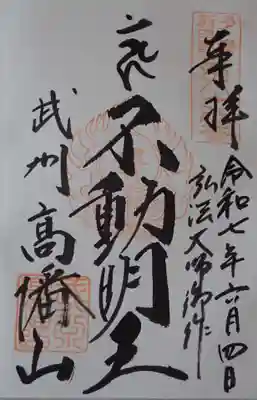 奉拝
令和七年六月四日
弘法大師御作
不動明王
武州
高幡山